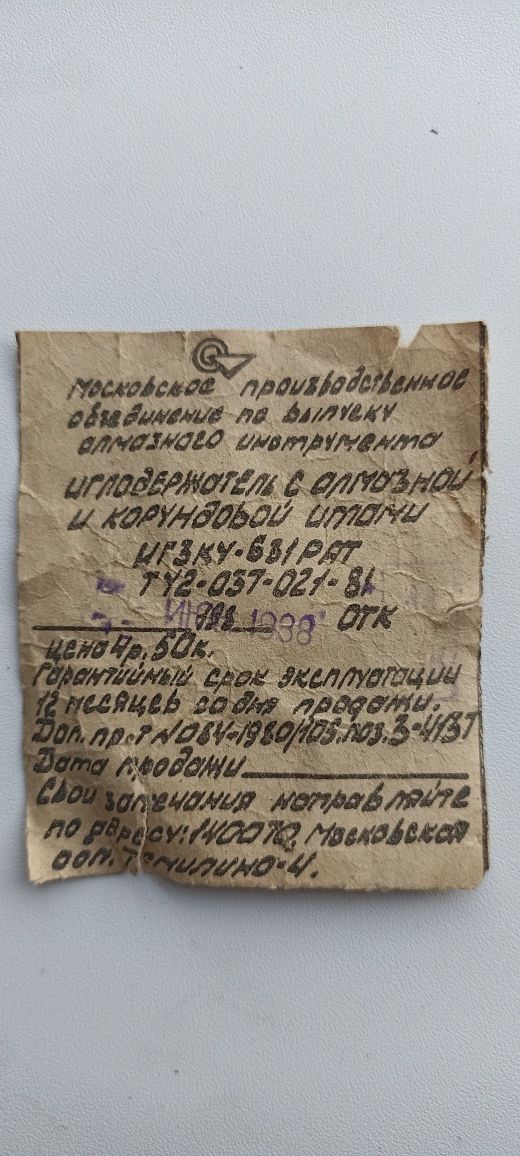 Московское производственное
объединение по выпуску
алмазного инструмента
ИГЛОДЕРЖАТЕЛЬ С АЛМАЗНОЙ
И КОРУНДОВОЙ ИГЛАМИ
ИГЗКУ-631РАТ
ТУ2-037-021-81
1988 ОТК
цена 4р.50к.
Гарантийный срок эксплуатации
12 месяцев со дня продажи.
Доп. пр-т №084-1980/105. поз. 3-4/ВТ
Дата продажи
Свои замечания направляйте
по адресу: 140070, Московская
обл. Томилино-4.